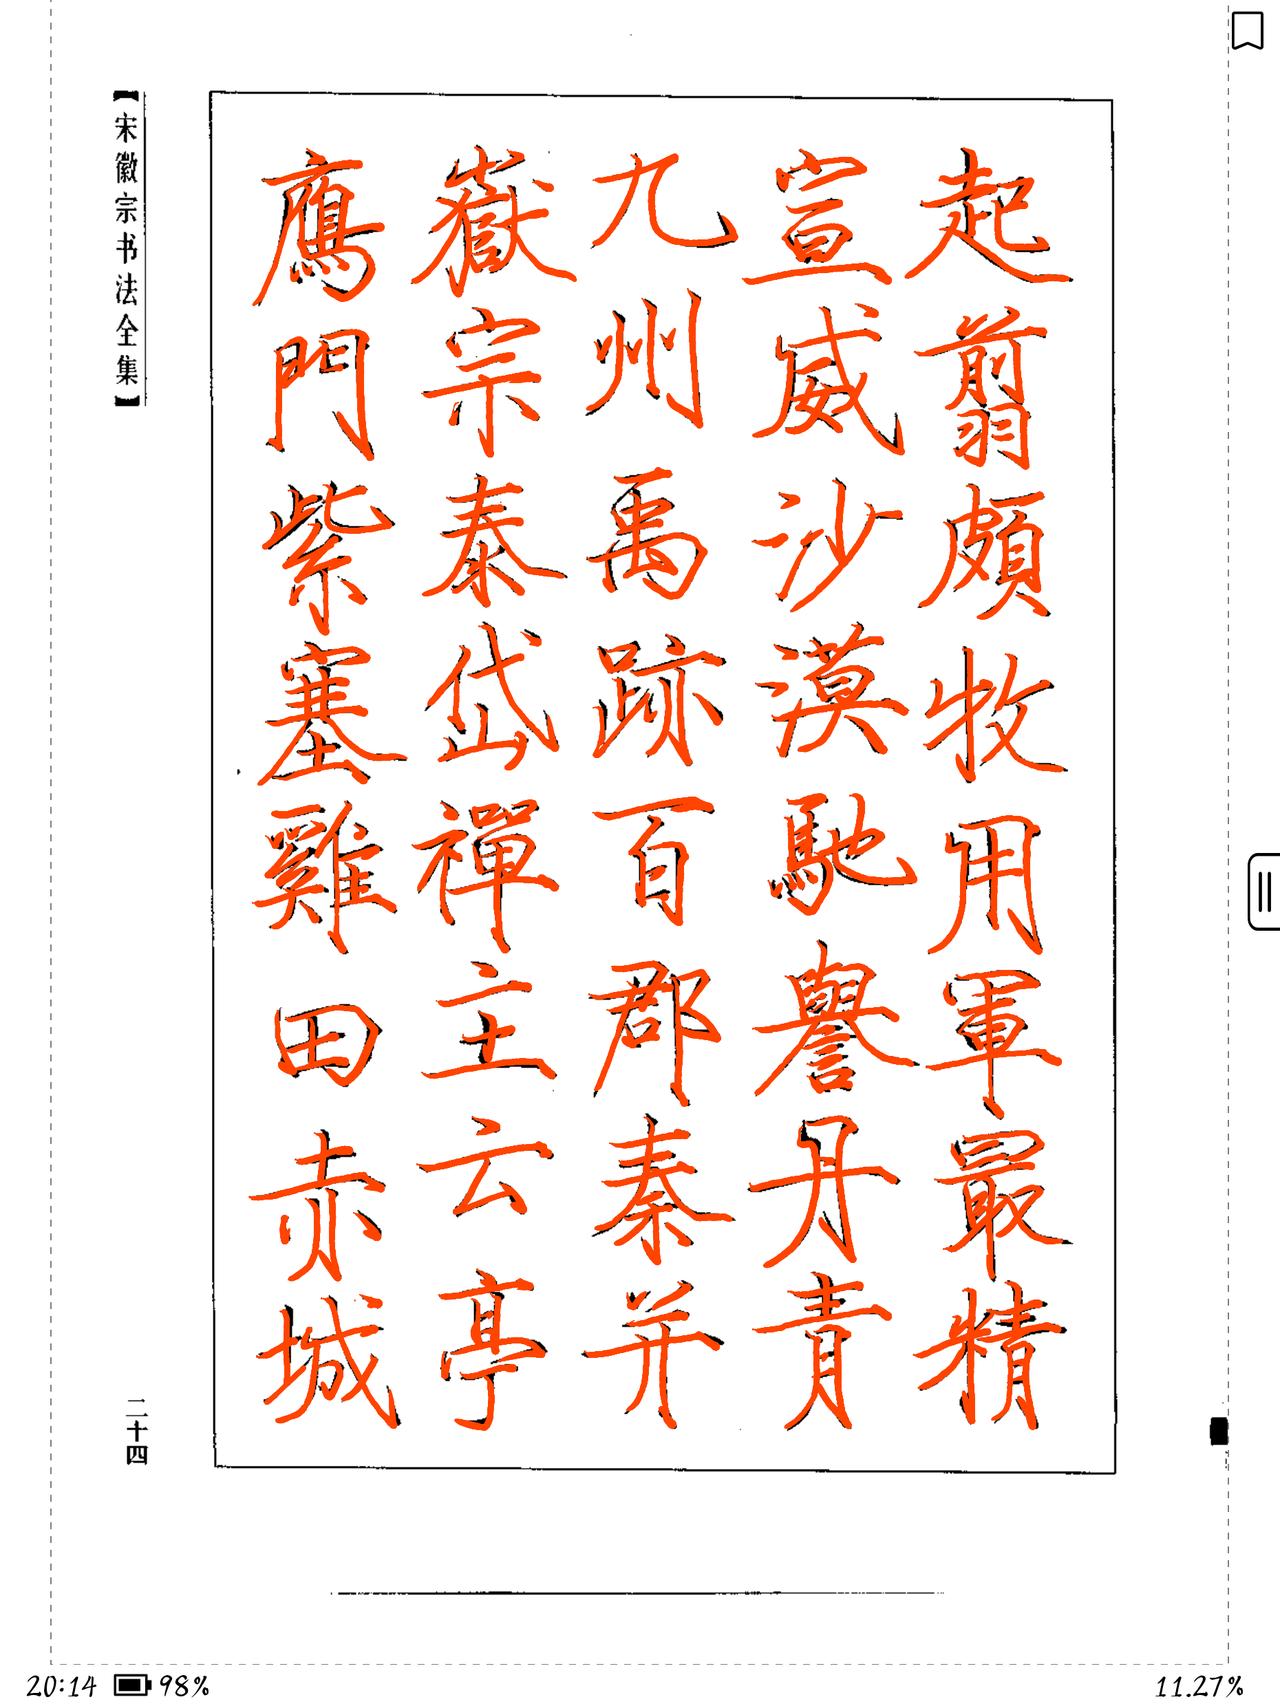 起翦頗牧用軍最精
宣威沙漠馳譽丹青
九州禹跡百郡秦并
嶽宗泰岱禪主云亭
鴈門紫塞雞田赤城
【宋徽宗书法全集】
二十四
20:14 98%
11.27%